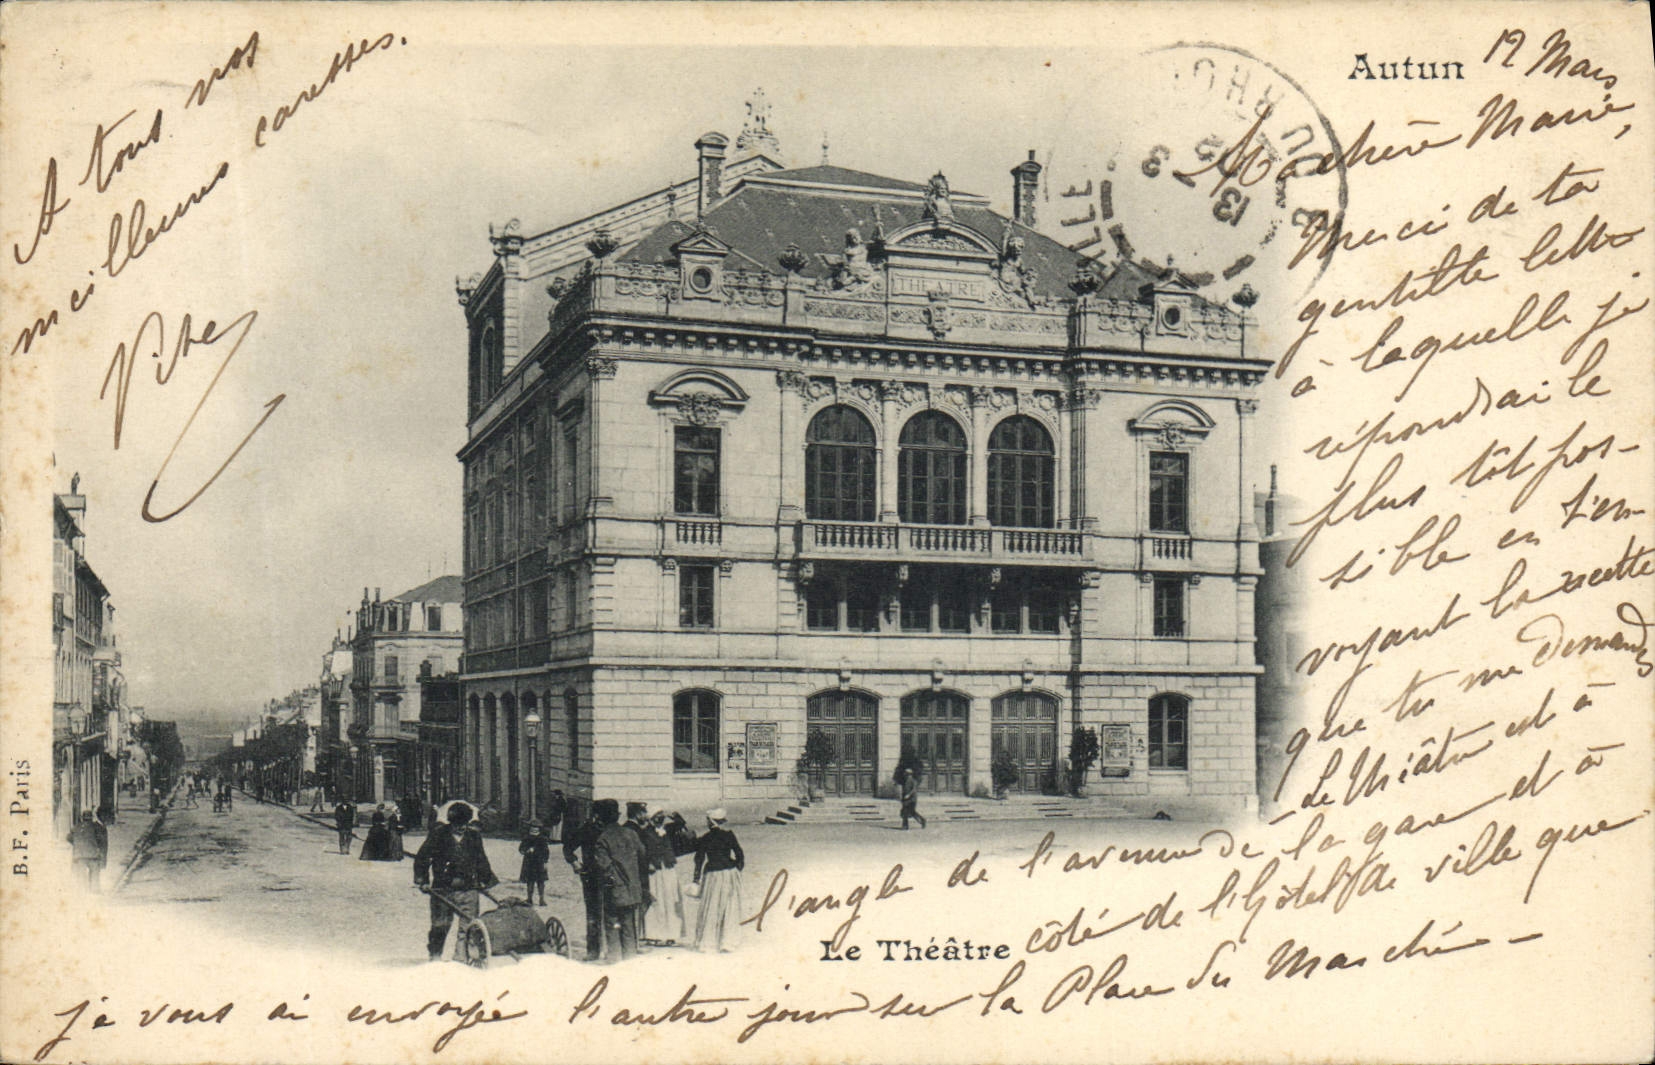 Autun
12 Mars
Ma chère Marie,
Merci de ta
gentille lettre
à laquelle je
répondrai le
plus tôt pos-
sible en t'en-
voyant la recette
que tu me demandes
Le théâtre est à
l'angle de l'avenue de la gare et à
côté de l'hôtel de ville que
je vous ai envoyée l'autre jour sur la Place du Marché -
A tous nos
meilleures caresses.
Le Théâtre
THEATRE
B. F. Paris
13
3